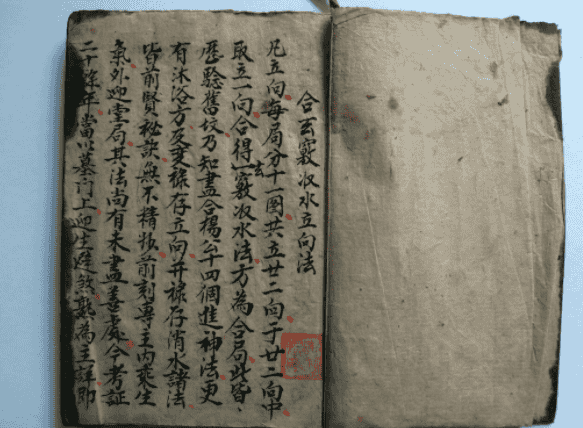 合玄竅收水立向法
凡立向每局分十一圖共立廿二向于廿二向中
取立一向合得一玄竅收水法方為合局此皆
歷驗舊坟乃知盡合楊公十四個進神法更
有沐浴方及变祿存立向并祿存消水諸法
皆前賢秘訣無不精牧前刻專主內乘生
氣外迎堂局其法尚有未盡善處今考証
二十餘年當以墓門上迎生避煞熟為主詳即